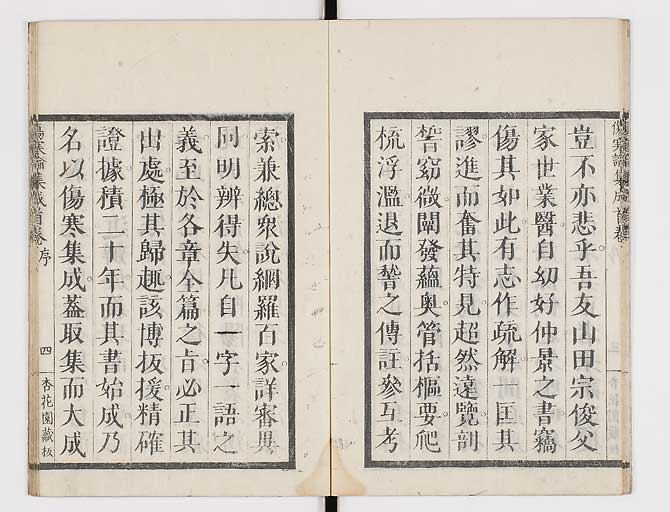 豈不亦悲乎吾友山田宗俊父
家世業醫自幼好仲景之書竊
傷其如此有志作疏解一匡其
謬進而奮其特見超然遠覽剖
晳窈微闡發蘊奧管括樞要爬
梳浮濫退而讐之傳註參互考
傷寒論集成首卷
索兼總衆說網羅百家詳審異
同明辨得失凡自一字一語之
義至於各章全篇之旨必正其
出處極其歸趣該博扳援精確
證據積二十年而其書始成乃
名以傷寒集成蓋取集而大成
傷寒論集成首卷 序 四 杏花園藏板